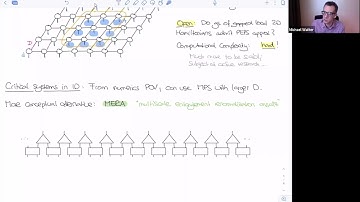 Open: Do gs of gapped local 2D
Hamiltonians admit PEPS approx?
Computational Complexity: hard!
Much more to be said/
Subject of active research...
Michael Walter
Critical Systems in 1D: From numerics POV, can use MPS with larger D.
More conceptual alternative: MERA "multiscale entanglement renormalization ansatz"